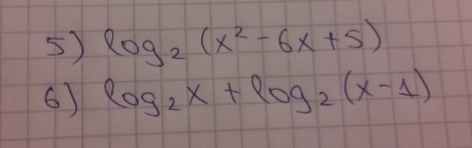 5) log₂ (x² - 6x + 5)
6) log₂x + log₂ (x - 1)